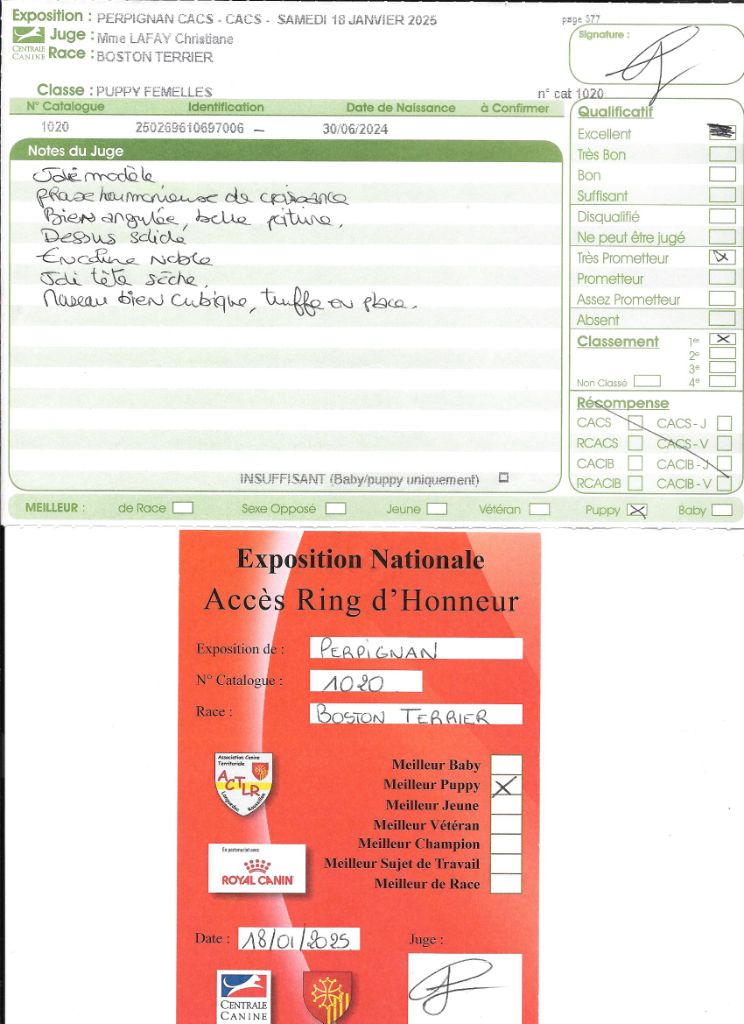 Exposition : PERPIGNAN CACS - CACS - SAMEDI 18 JANVIER 2025
page 377
CENTRALE CANINE
Juge : Mme LAFAY Christiane
Race : BOSTON TERRIER
Signature :
Classe : PUPPY FEMELLES
n° cat 1020
N° Catalogue Identification Date de Naissance à Confirmer
1020 250269610697006 – 30/06/2024
Notes du Juge
Joli modèle
phase harmonieuse de croissance
Bien angulée, belle
Dessus solide
Encolure Noble
Joli tête sèche.
Museau bien cubique, truffe en place.
INSUFFISANT (Baby/puppy uniquement)
Qualificatif
Excellent
Très Bon
Bon
Suffisant
Disqualifié
Ne peut être jugé
Très Prometteur
Prometteur
Assez Prometteur
Absent
Classement 1er
2e
3e
Non Classé 4e
Récompense
CACS CACS - J
RCACS CACS - V
CACIB CACIB - J
RCACIB CACIB - V
MEILLEUR : de Race Sexe Opposé Jeune Vétéran Puppy Baby
Exposition Nationale
Accès Ring d'Honneur
Exposition de : PERPIGNAN
N° Catalogue : 1020
Race : BOSTON TERRIER
Association Canine
Territoriale
ACTLR
Languedoc Roussillon
Meilleur Baby
Meilleur Puppy
Meilleur Jeune
Meilleur Vétéran
Meilleur Champion
Meilleur Sujet de Travail
Meilleur de Race
En partenariat avec
ROYAL CANIN
Date : 18/01/2025
Juge :
CENTRALE
CANINE